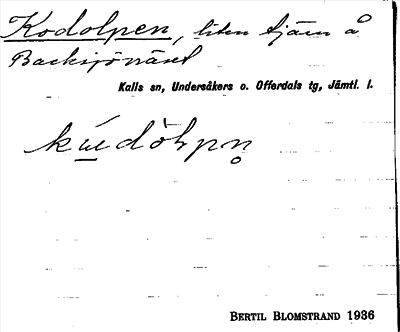 Kodolpen, liten tjärn å
Backsjönäset
Kalls sn, Undersåkers o. Offerdals tg, Jämtl. l.
BERTIL BLOMSTRAND 1936